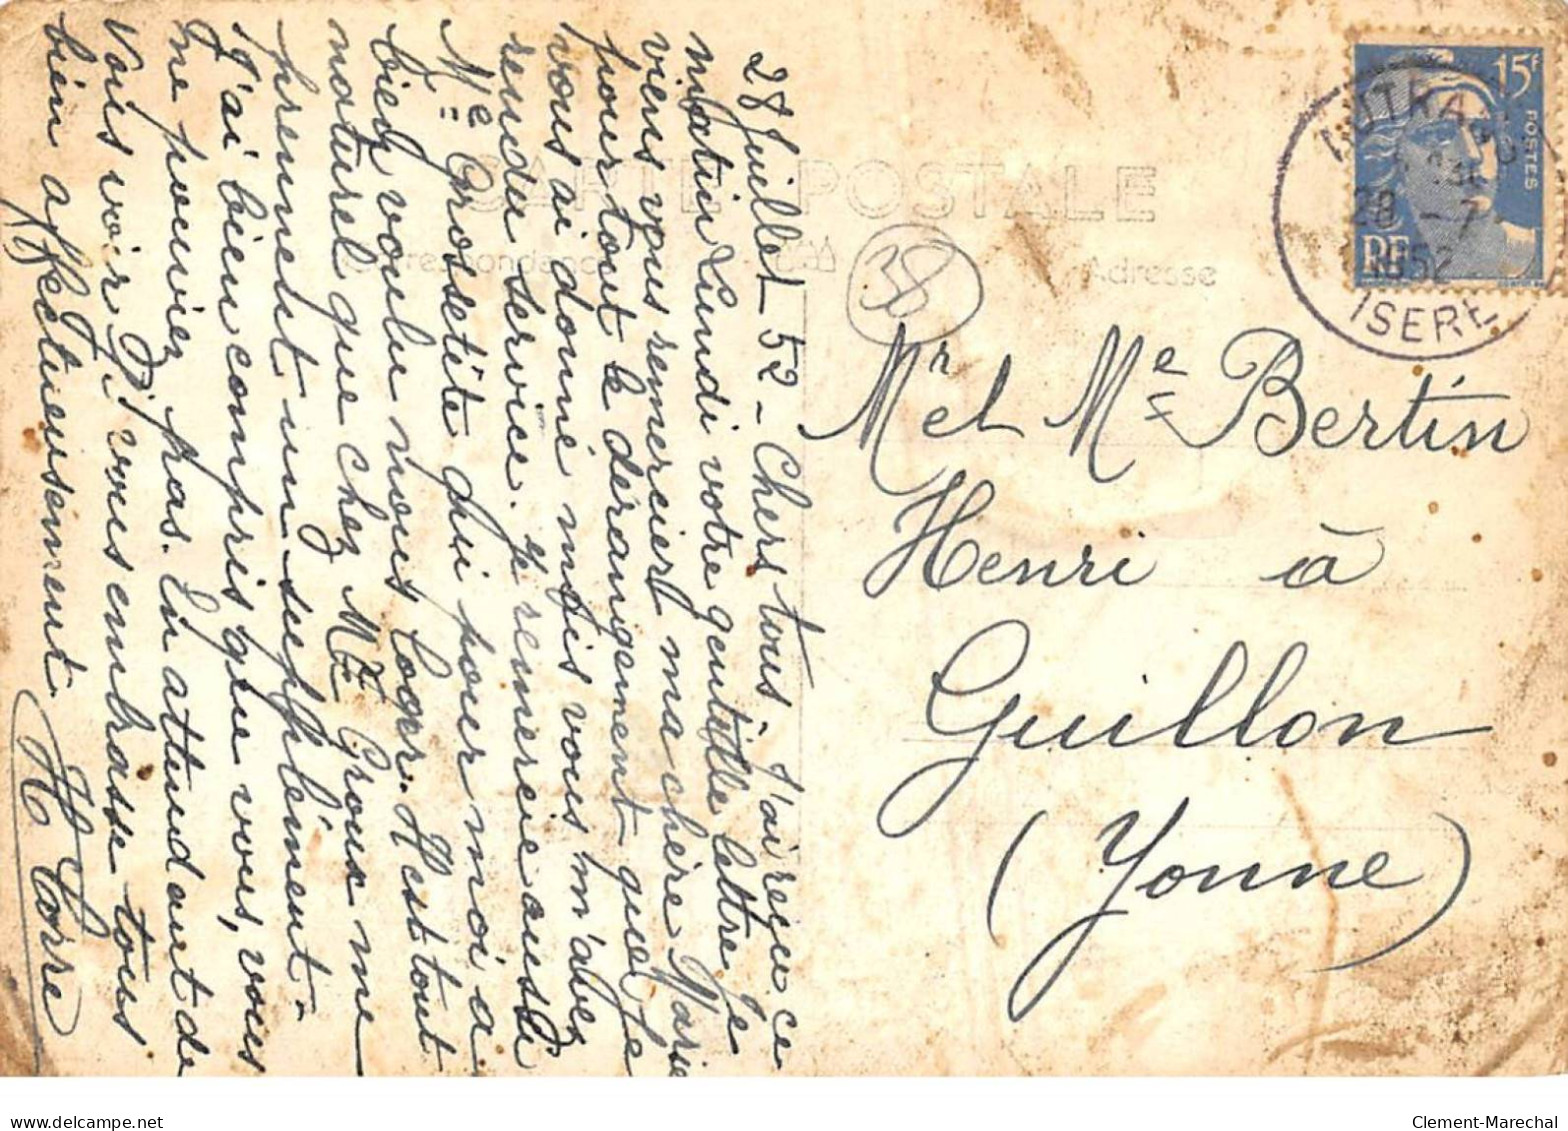 CARTE POSTALE
Correspondance
Adresse
38
15f
POSTES
RF
28 - 7
1952
ISERE
28 Juillet 52 - Chers tous - J'ai reçu ce
matin Lundi votre gentille lettre. Je
viens vous remercier ma chère Marie
pour tout le dérangement que je
vous ai donné mais vous m'avez
rendu service. Je remercie aussi
Me Grosset qui pour moi a
bien voulu nous loger. Il est tout
naturel que chez Me Groux me
prennent un supplément.
J'ai bien compris que vous, vous
ne pouviez pas. En attendant de
vous voir, je vous embrasse tous
bien affectueusement
H Corre
Mr et Me Bertin
Henri à
Guillon
(Yonne)
Clement-Marechal